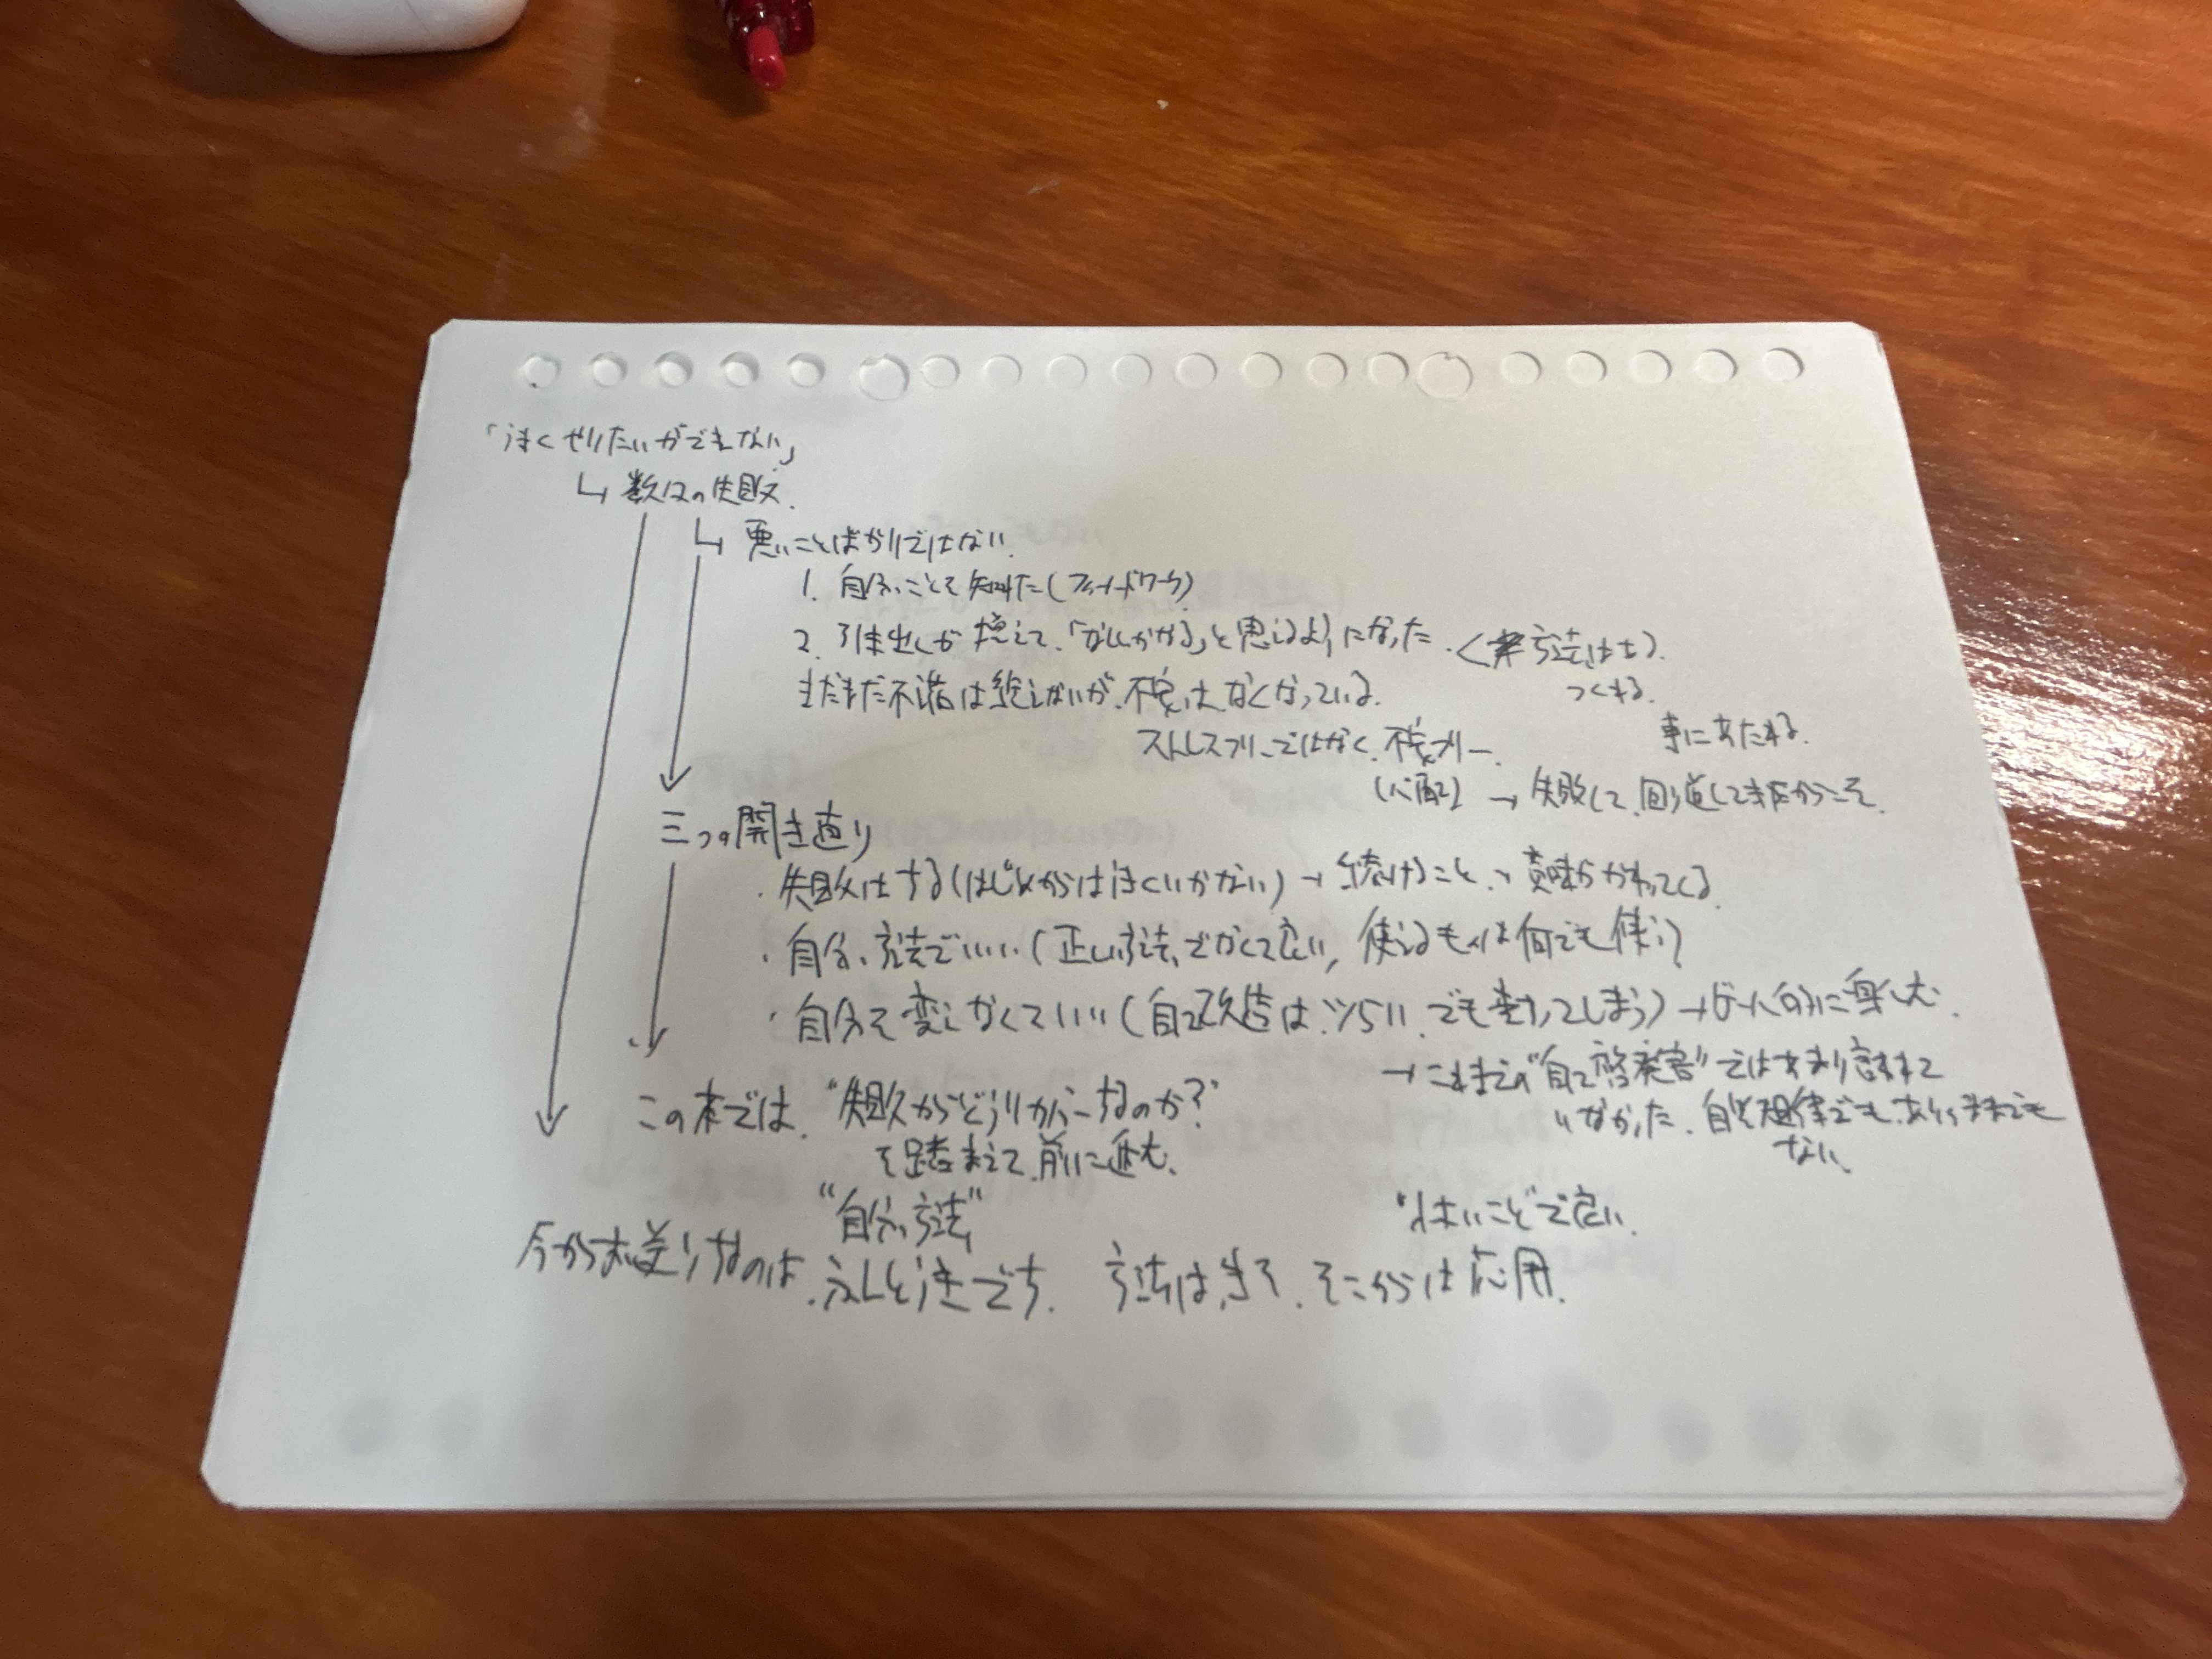 「うまくやりたいができない」
↳ 数々の失敗.
↳ 悪いことばかりではない.
1. 自分のことを知れた(フィードワーク)
2. 引き出しが増えて、「なんとかなる」と思えるようになった. <方法は
つくれる.
まだまだ不満は絶えないが、不安はなくなっている.
事にあたれる.
ストレスフリーではなく、不安フリー.
(心配) → 失敗して、回り道してきたからこそ.
三つの開き直り
・失敗はする(はじめからはうまくいかない) → 続けることの意味がかわってくる.
・自分の方法でいい(正しい方法でなくて良い, 使えるものは何でも使う)
・自分を変えなくていい(自己改造は、つらい. でも変わってしまう) → ゲーム的に楽しむ.
→ これまでの"自己啓発書"ではあまり言われて
いなかった. 自己規律でも、ありのままでも
ない.
この本では、"失敗からどうリカバーするのか?"
を踏まえて、前に進む.
"自分の方法"
"小さいこと"で良い.
今から お送りするのは、 です. 方法は、まず、そこからは応用.